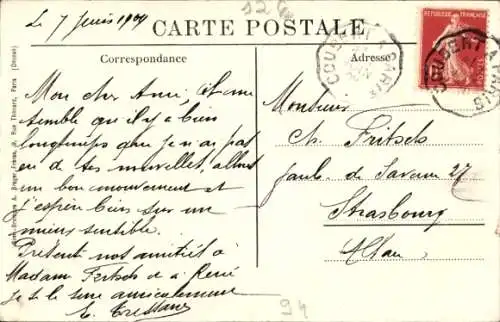 Le 7 Juin 1909
CARTE POSTALE
Correspondance
Adresse
Mon cher Ami. Il me
semble qu'il y a bien
longtemps que je n'ai pas
eu de tes nouvelles, allons
un bon mouvement et
j'espère bien sur un
moins sensible.
Présente nos amitiés à
Madame Fritsch et à René
je te la serre amicalement
Monsieur
Ch. Fritsch
Faub. de Saverne 27
Strasbourg
Alsace
COUBERT A PARIS
REPUBLIQUE FRANÇAISE
94